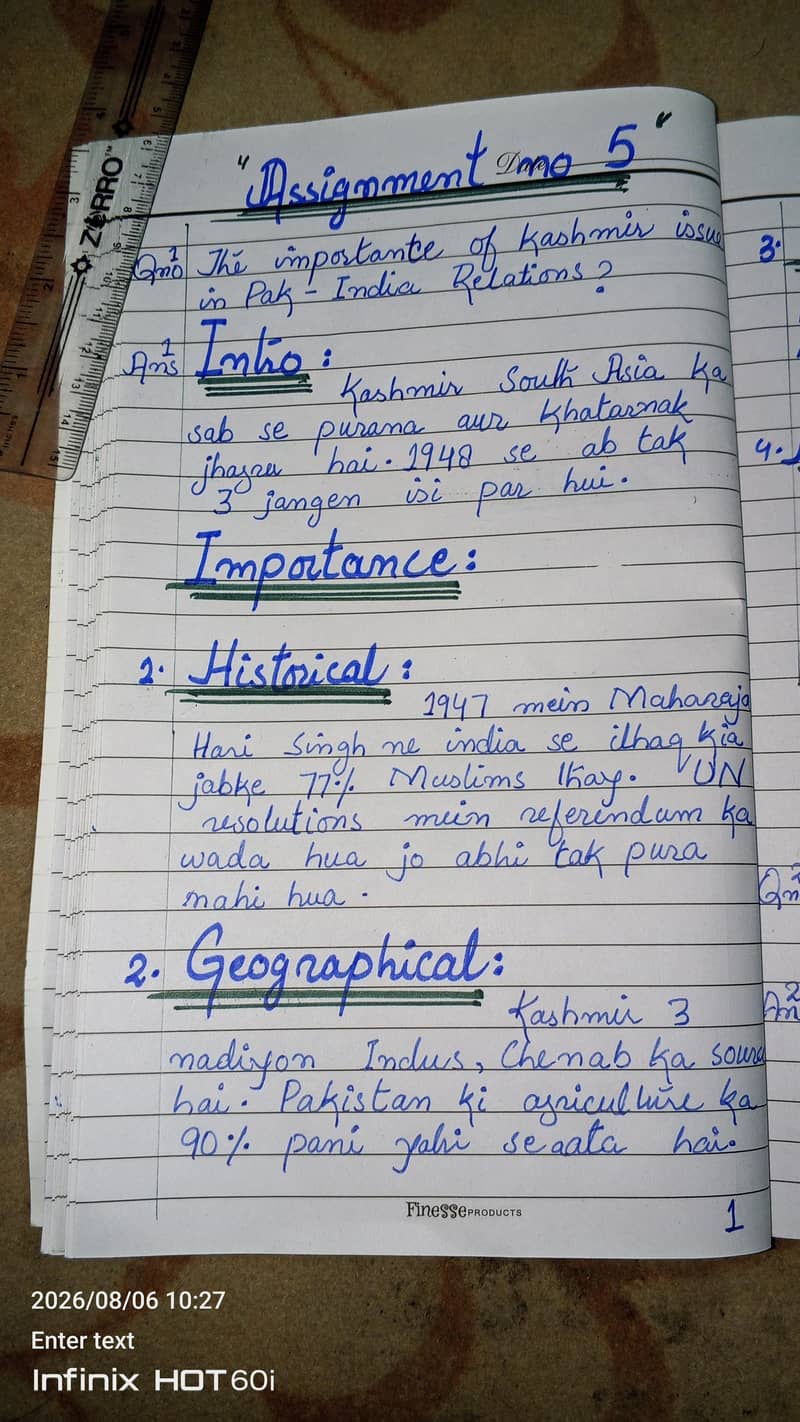 "Assignment no 5"
Date
Qno 1 The importante of Kashmir issue
in Pak - India Relations?
Ans 1 Intro:
Kashmir South Asia ka
sab se purana aur khatarnak
hai. 1948 se ab tak
3 jangen isi par hui.
Importance:
1. Historical:
1947 mein Maharaja
Hari Singh ne india se ilhaq kia
jabke 77% Muslims thay. UN
resolutions mein referendum ka
wada hua jo abhi tak pura
nahi hua.
2. Geographical:
Kashmir 3
nadiyon Indus, Chenab ka sourc
hai. Pakistan ki agriculture ka
90% pani yahi se aata hai.
Finesse PRODUCTS
1
3.
4.
Qn 2
An 2
ZORRO
2026/08/06 10:27
Enter text
Infinix HOT 60i